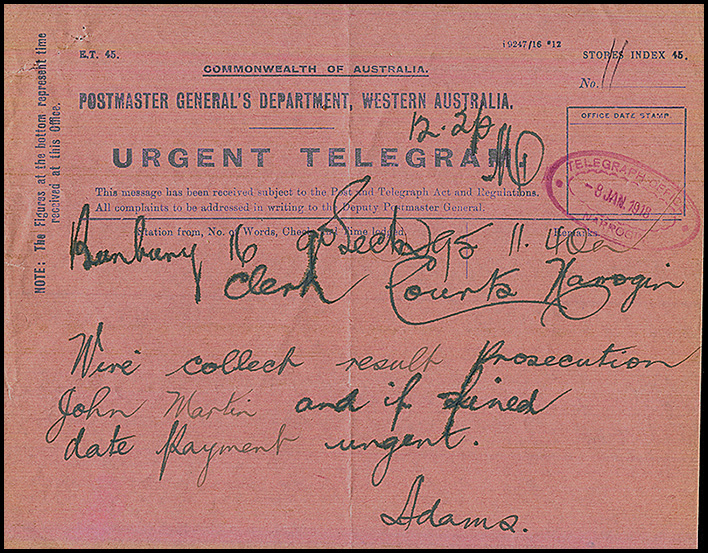 E.T. 45.
19247/16 *12
STORES INDEX 45.
No. 11
COMMONWEALTH OF AUSTRALIA.
POSTMASTER GENERAL'S DEPARTMENT, WESTERN AUSTRALIA.
12.2p
URGENT TELEGRAM
OFFICE DATE STAMP.
TELEGRAPH OFFICE
-8 JAN. 1918
NARROGIN
This message has been received subject to the Post and Telegraph Act and Regulations.
All complaints to be addressed in writing to the Deputy Postmaster General.
Station from, No. of Words, Check and Time lodged.
Remarks
Bunbury 16 295 11.40a
Clerk Courts Narrogin
Wire collect result prosecution
John Martin and if fined
date payment urgent.
Adams.
NOTE: The Figures at the bottom represent time
received at this Office.